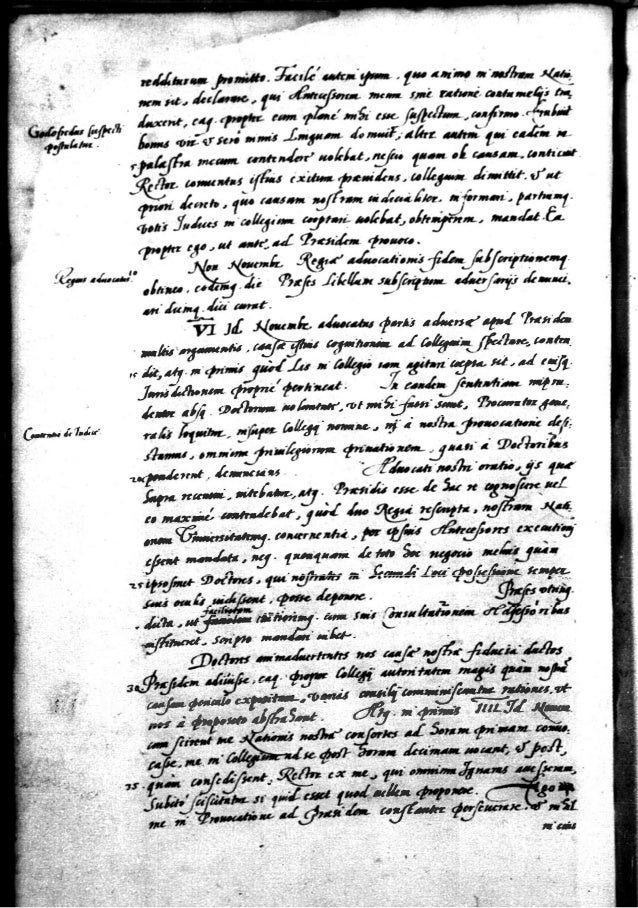 redditurum promitto. Facilé autem ipsum, quo animo in nostram Natio,
nem sit, declarare, qui Antecessorem meum sine ratione contumelijs tra,
duxerit, eaq. propter eum plané mihi esse suspectum, confirmo.
Godofredus suspecti
postulatur.
bonus vir & seró nimis Linguam domuit; alter autem qui eadem in
5 palæstra mecum contendere volebat, nescio quam ob causam, conticuit
Rector conventus istius exitum prævidens, collegium dimittit, & ut
priori decreto, quo causam nostram iudicialiter informari, partiumq.
votis Iudices in collegium cooptari volebat, obtemperem, mandat. Ea
propter ego, ut ante, ad Præsidem provoco.
Regius advocatus.
Non Novembr. Regiæ advocationis fidem subscriptionemq.
obtineo, eodemq. die Præses Libellum subscriptum adversarijs denunci,
ari diemq. dici curat.
VI Id. Novembr. advocatus partis adversæ apud Præsidem
multis argumentis, causæ istius cognitionem ad Collegium spectare, conten,
15 dit, atq. in primis quòd Lis in Collegio iam agitari coepta sit, ad eiusq.
Iurisdictionem proprié pertineat. In eandem sententiam impru,
denter absq. Doctorum voluntate, ut mihi fassi sunt, Procurator gene,
Contentio de Iudice
ralis loquitur, insuper Collegij nomine, nj à nostra provocatione desi,
stamus, omnium privilegiorum privationem, quasi à Doctoribus
20 penderent, denuncians. Advocati nostri oratio, ijs quæ
supra recensui, nitebatur, atq. Præsidis esse de hac re cognoscere vel
eo maximé contendebat, quòd duo Regia rescripta, nostram Nati,
onem Universitatemq. concernentia, per ipsius Antecessores executioni
essent mandata, neq. quenquam de toto hoc negocio melius quàm
25 ipsosmet Doctores, qui nostrates in Secundi Loci possessione semper
suis oculis vidissent, posse deponere. Præses utring.
dicta, ut cum suis Consultationem Assessoribus
institueret, scripto mandari iubet.
Doctores animadvertentes nos causæ nostræ fiducia ductos
30 Præsidem adivisse, eaq. propter Collegij autoritatem magis quàm nostrã
causam periculo expositam, varias consilij comminiscuntur rationes, ut
nos à proposito abstrahant. Atq. in primis IIII Id. Novem.
cum scirent me Nationis nostræ consortes ad horam primam convo,
casse, me in Collegium ad se post horam decimam vocant, & post,
35 quàm consedissent, Rector ex me, qui omnium Ignarus accesseram,
subito sciscitatur si quid esset quod vellem proponere. Ego
me in Provocatione ad Præsidem constanter perseverare & mihi
in eius